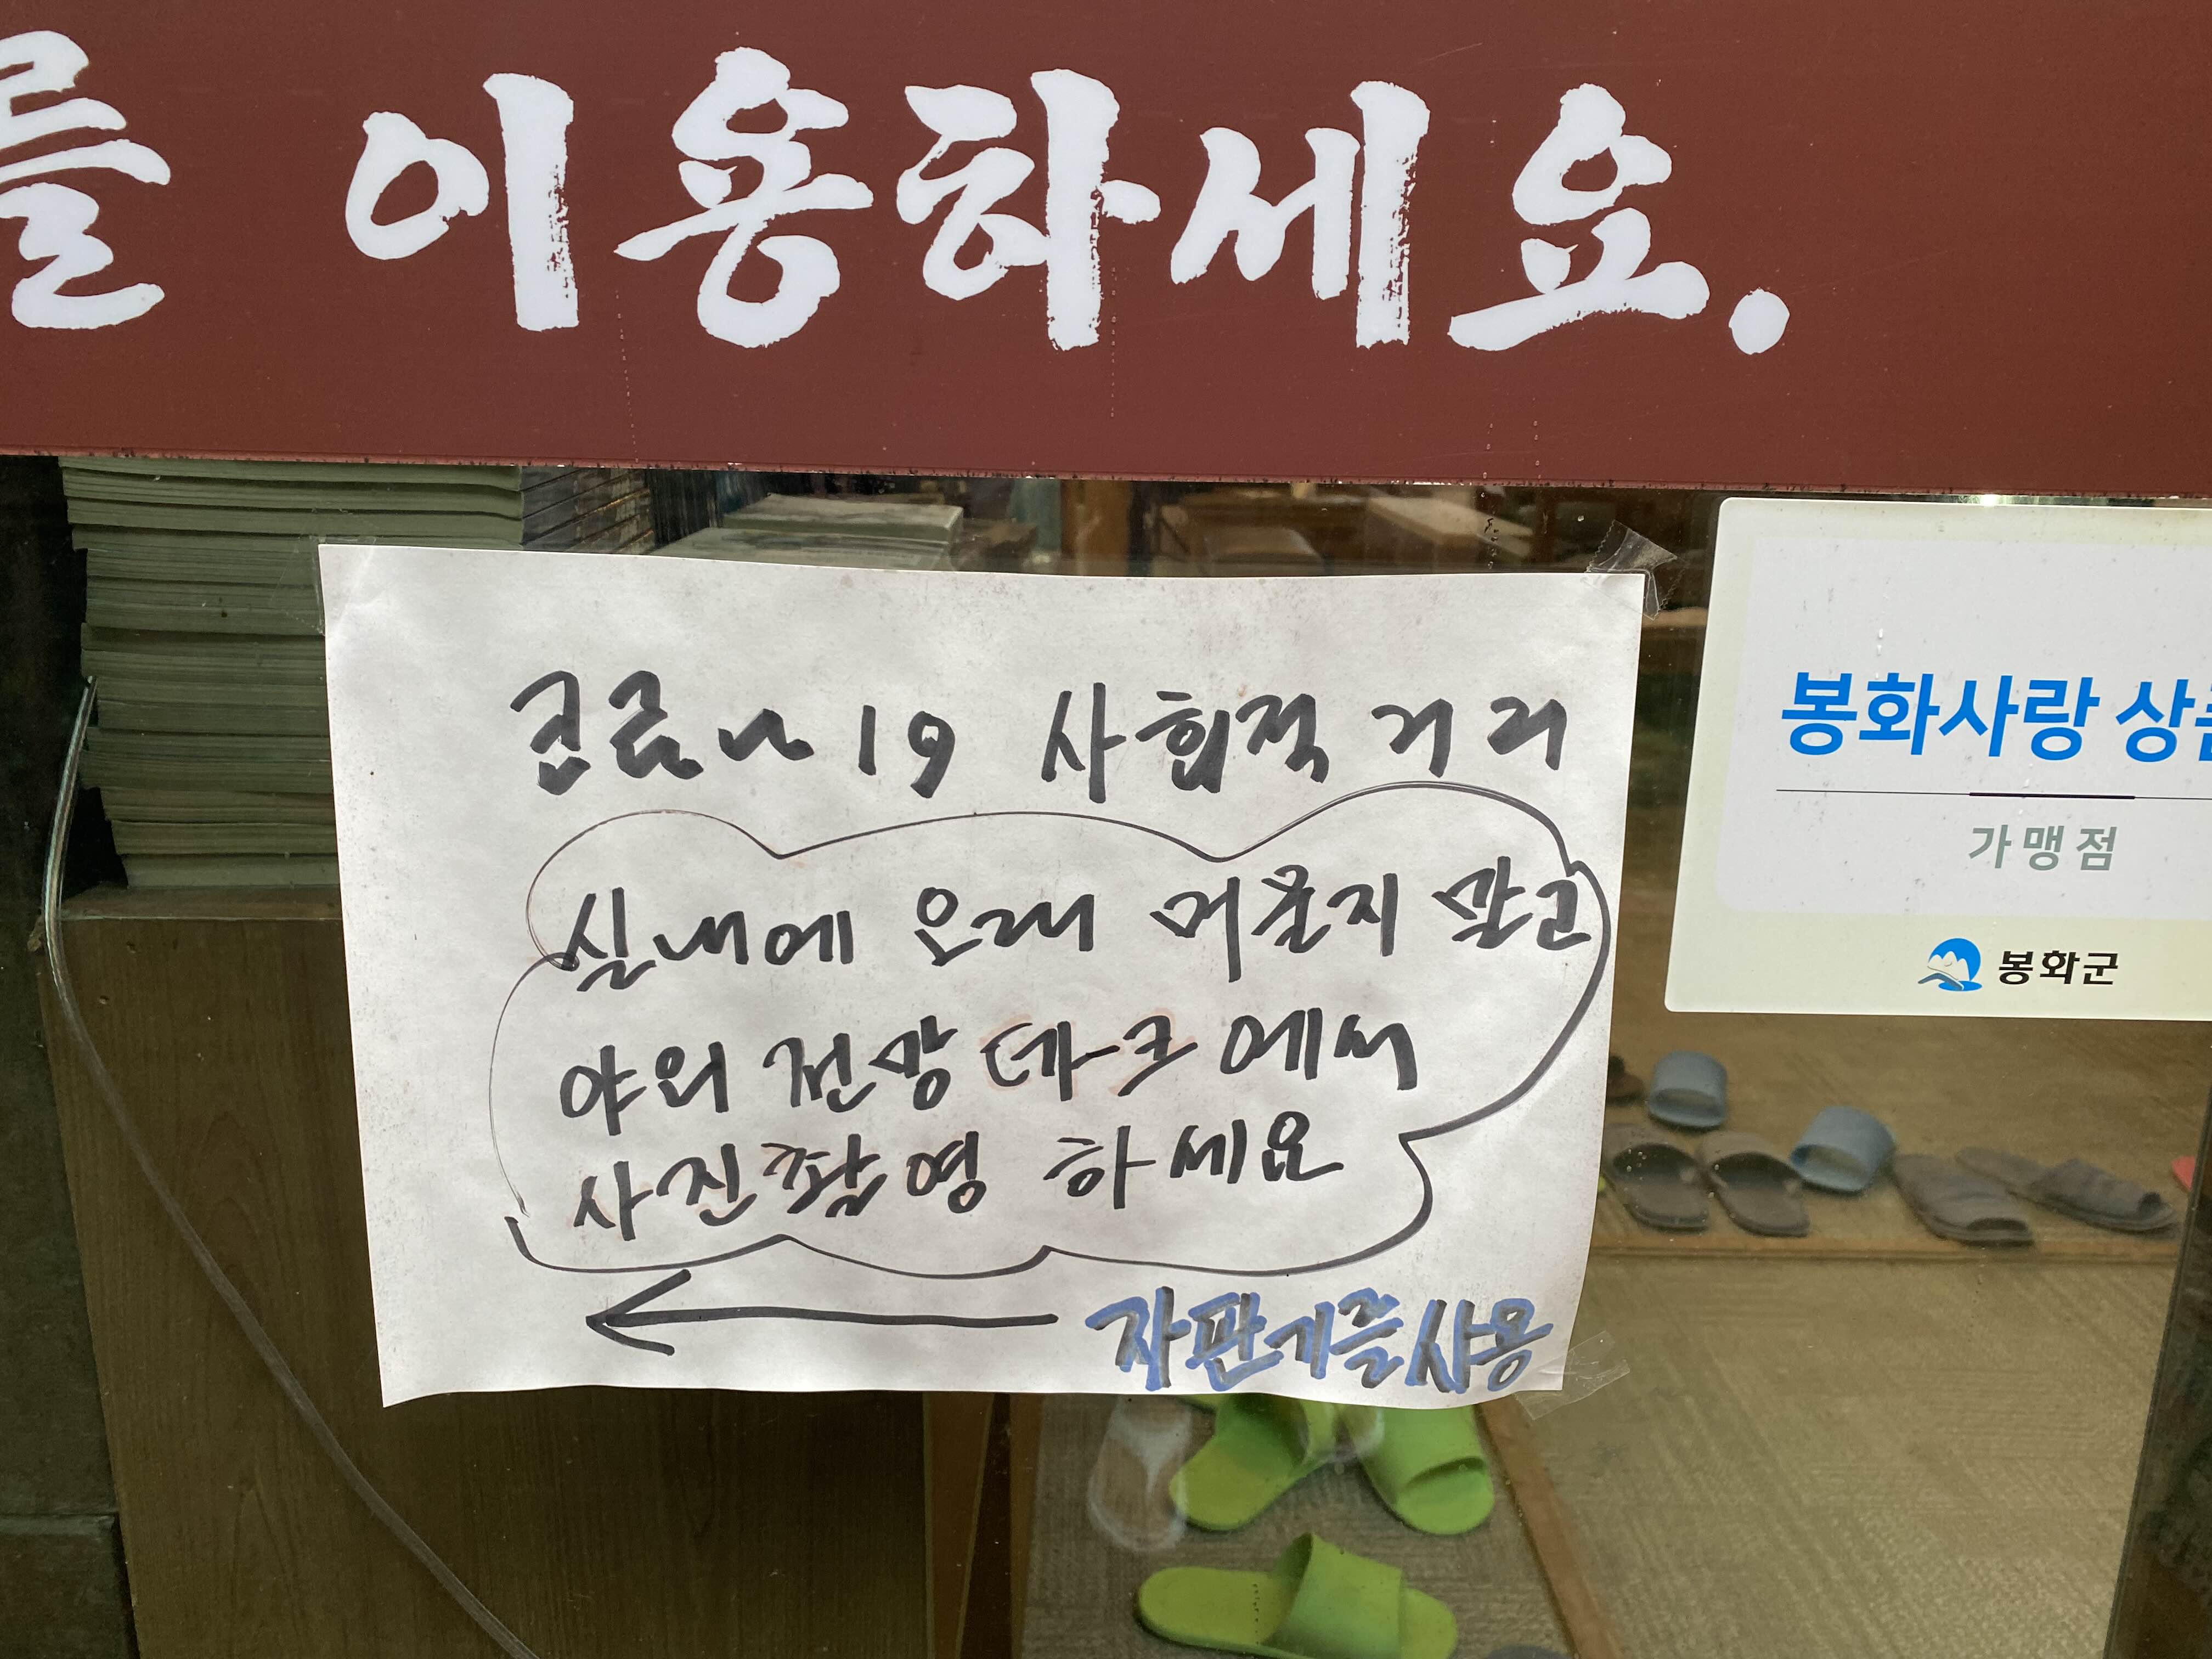 를 이용하세요.
코로나19 사회적 거리
실내에 오래 머물지 말고
야외 전망 데크에서
사진촬영 하세요
자판기를사용
봉화사랑 상
가맹점
봉화군